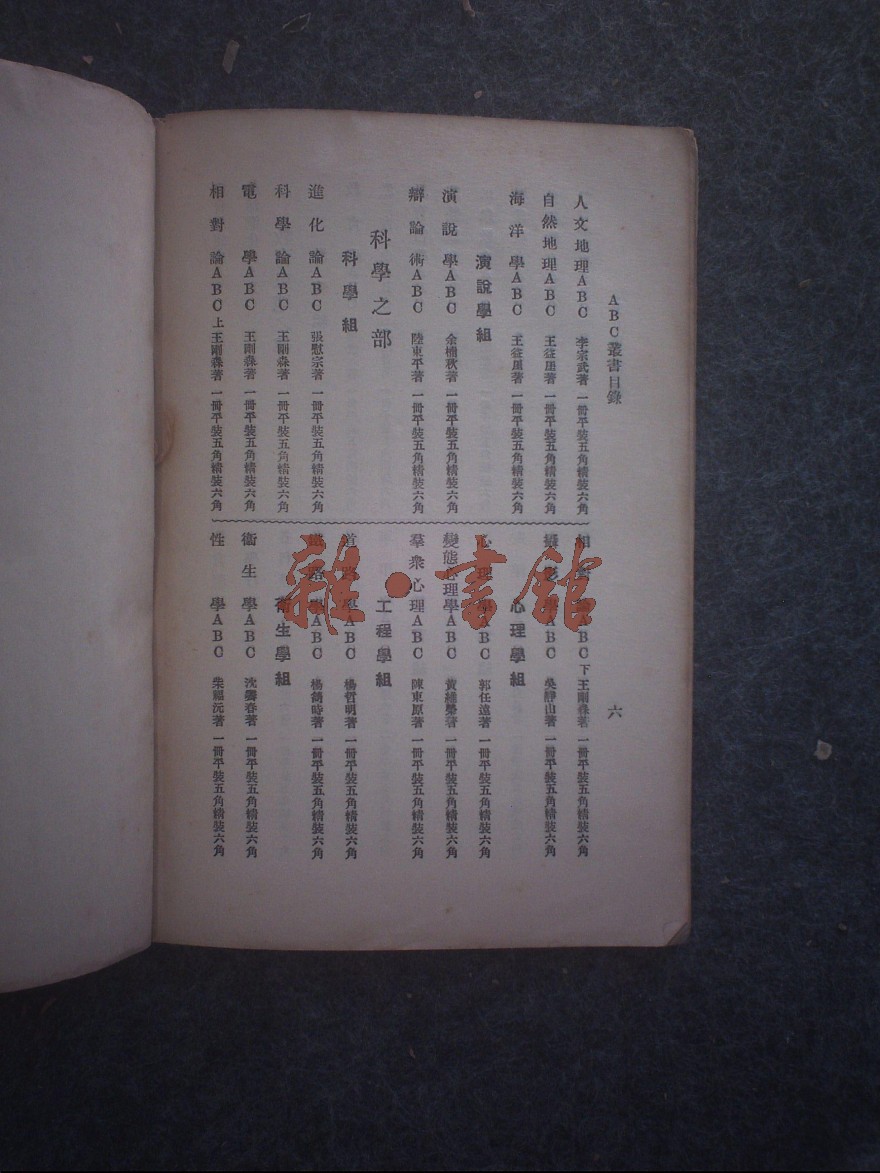 ABC叢書目錄
六
人文地理ABC 李宗武著 一冊平裝五角精裝六角
自然地理ABC 王益厓著 一冊平裝五角精裝六角
海洋學ABC 王益厓著 一冊平裝五角精裝六角
演說學組
演說學ABC 余楠秋著 一冊平裝五角精裝六角
辯論術ABC 陸東平著 一冊平裝五角精裝六角
科學之部
科學組
進化論ABC 張慰宗著 一冊平裝五角精裝六角
科學論ABC 王剛森著 一冊平裝五角精裝六角
電學ABC 王剛森著 一冊平裝五角精裝六角
相對論ABC上 王剛森著 一冊平裝五角精裝六角
相對論ABC下 王剛森著 一冊平裝五角精裝六角
攝影學ABC 吳靜山著 一冊平裝五角精裝六角
心理學組
心理學ABC 郭任遠著 一冊平裝五角精裝六角
變態心理學ABC 黃維榮著 一冊平裝五角精裝六角
羣衆心理ABC 陳東原著 一冊平裝五角精裝六角
工程學組
道路學ABC 楊哲明著 一冊平裝五角精裝六角
鐵路學ABC 楊時著 一冊平裝五角精裝六角
衛生學組
衞生學ABC 沈春著 一冊平裝五角精裝六角
性學ABC 柴福沅著 一冊平裝五角精裝六角
雜·書館